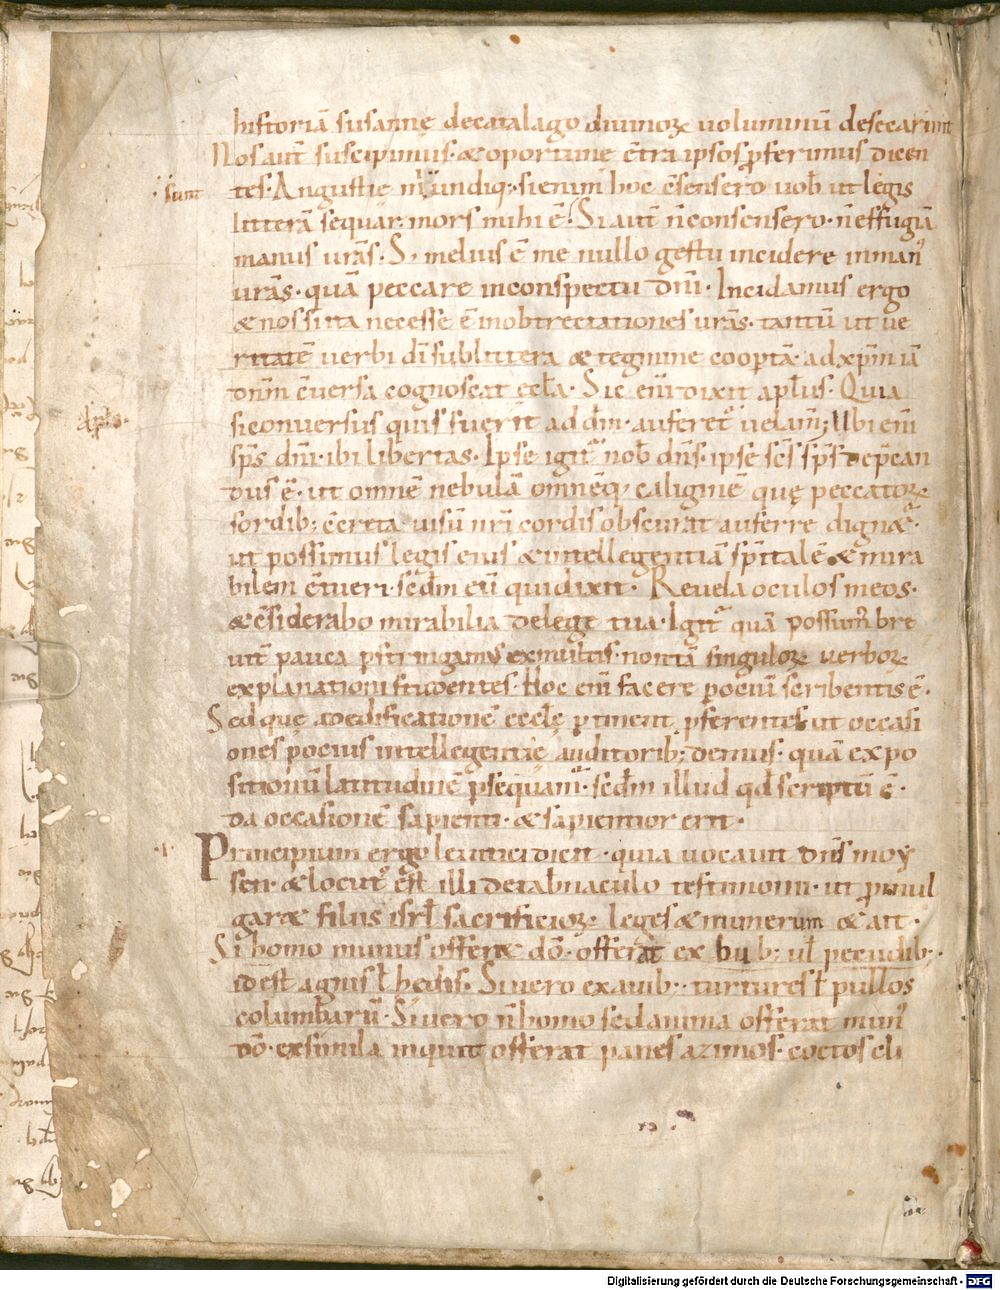 historiā susannę decatalago diuinoꝝ uoluminū desecarunt
Nos aut̄ suscipimus· & oportune c̄tra ipsos p̄ferimus dicen
sunt
tes· Angustie m̄ undiq;· si enim hoc c̄sensero uob̄ ut legis
litterā sequar· mors mihi ē· Si aut̄ n̄ consensero· n̄ effugiā
manus ur̄as· S; melius ē me nullo gestu incidere inman'
ur̄as· quā peccare inconspectu dn̄i· Incidamus ergo
& nos si ita necesse ē inobtrectationes ur̄as· tantū ut ue
ritatē uerbi dī sub littera & tegmine coopt̄a· ad xp̄m iā
dn̄m c̄uersa cognoscat eccl̄a· Sic eni dixit apl̄us· Quia
apl̄s·
si conuersus quis fuerit ad dm̄· auferet' uelam̄; Ubi eni
sp̄s dn̄i· ibi libertas· Ipse igit' nob̄ dn̄s· ipse sc̄s sp̄s dep̄can
dus ē· ut omnē nebulā omnēq; caliginē quę peccatoꝝ
sordib; c̄creta uisū nr̄i cordis obscurat auferre dignet'·
ut possimus legis eius & intellegentiā sp̄italē & mira
bilem c̄tueri· scd̄m eū qui dixit· Reuela oculos meos·
& c̄siderabo mirabilia de lege tua· Igit' quā possum' bre
uit̄ pauca p̄stringam' ex multis· non tā singuloꝝ uerboꝝ
explanationi studentes· Hoc eni facere p̄ ociū scribentis ē·
Sed quę ad edificationē eccl̄ę p̄tinent p̄ferentes ut occasi
ones pocius intellegentię auditorib; demus· quā expo
sitionū latitudinē p̄sequam'· scd̄m illud qd̄ scriptū ē·
da occasionē sapienti· & sapientior erit·
Principium ergo leuitici dicit· quia uocauit dn̄s moy
sen· & locut' est illi de tab̄naculo testimonii· ut p̄mul
gar& filiis isrl̄ sacrificioꝝ leges & munerum & ait·
Si homo munus offer& dō· offerat ex bub; ul̄ pecudib;·
id est agnis ł hedis· Si uero ex auib;· turtures ł pullos
columbarū· Si uero n̄ homo sed anima offerat mun'
dō· ex simila inquit offerat panes azimos· coctos cli
Digitalisierung gefördert durch die Deutsche Forschungsgemeinschaft - DFG